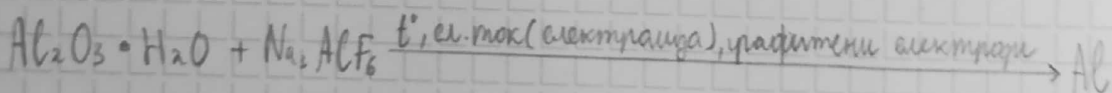 Al₂O₃ • H₂O + Na₃AlF₆ t°, ел. ток (електролиза), графитени електроди → Al